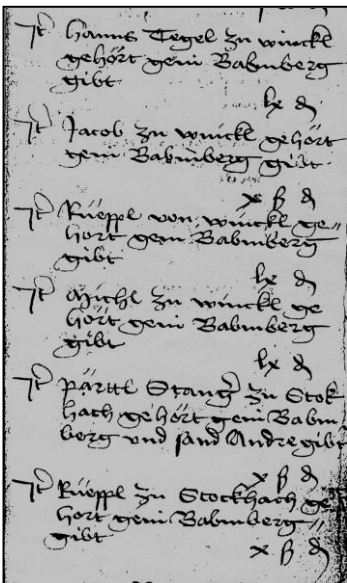 Jt Hanns Tegel zu winckl
gehört gein Babmberg
gibt
lx ₰
Jt Jacob zu winckl gehört
gein Babmberg gibt
x ß ₰
Jt Rüeppl von winckl ge„
hort gein Babmberg
gibt
lx ₰
Jt Michl zu winckl ge
hört gein Babmberg
gibt
lx ₰
Jt Pärttl Stangl zu Stok
hach gehört gein Babm
berg vnd sand Andre gibt
x ß ₰
Jt Rüeppl zu Stockhach ge
hort gein Babmberg „
gibt
x ß ₰